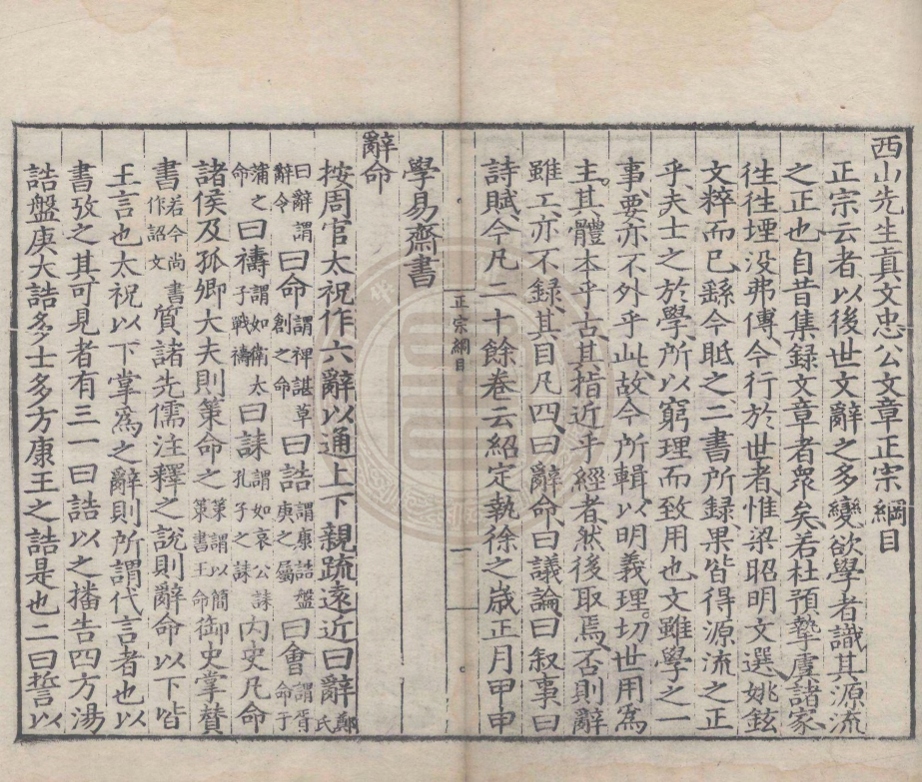 西山先生真文忠公文章正宗綱目
正宗云者以後世文辭之多變欲學者識其源流
之正也自昔集録文章者衆矣若杜預摯虞諸家
徃徃堙没弗傳今行於世者惟梁昭明文選姚鉉
文粹而已繇今眂之二書所録果皆得源流之正
乎夫士之於學所以窮理而致用也文雖學之一
事要亦不外乎此故今所輯以明義理切世用爲
主其體本乎古其指近乎經者然後取焉否則辭
雖工亦不録其目凡四曰辭命曰議論曰叙事曰
詩賦今凡二十餘卷云紹定執徐之歲正月甲申
學易齋書
正宗綱目
一
辭命
按周官太祝作六辭以通上下親疏遠近曰辭鄭氏
曰辭謂辭令曰命謂裨諶草創之命曰誥謂康誥盤庚之屬曰會謂胥命于
蒲之命曰禱謂如衛太子戰禱曰誄謂如哀公誄孔子之誄内史凡命
諸侯及孤卿大夫則策命之策謂以簡策書王命御史掌贊
書若今尚書作詔文質諸先儒注釋之說則辭命以下皆
王言也太祝以下掌爲之辭則所謂代言者也以
書攷之其可見者有三一曰誥以之播告四方湯
誥盤庚大誥多士多方康王之誥是也二曰誓以